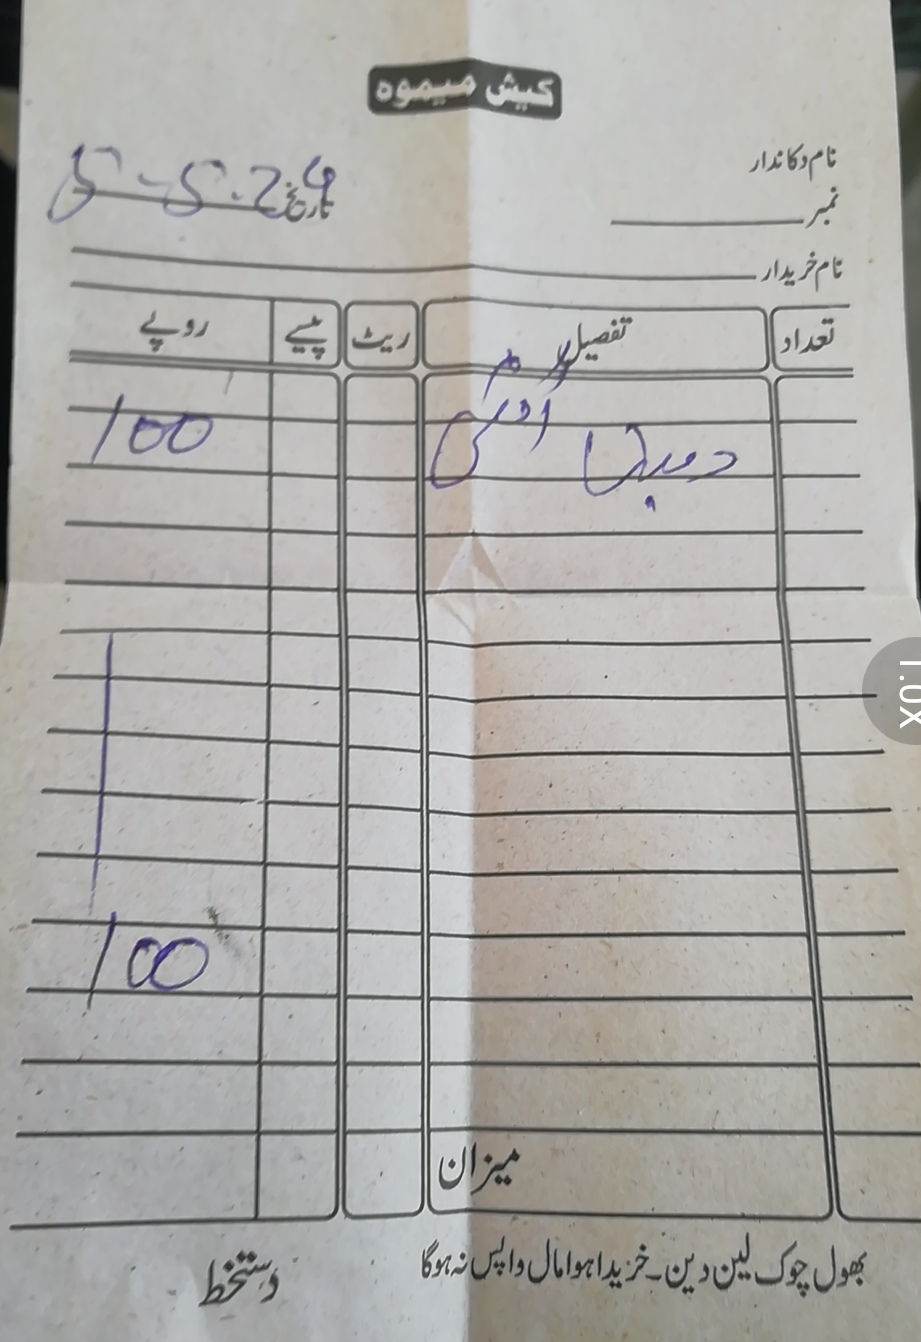 کیش میمو
نام دکاندار
نمبر
تاریخ 5-5-24
نام خریدار
تعداد تفصیل ریٹ پیسے روپے
100
100
میزان
بھول چوک لین دین۔خریدا ہوا مال واپس نہ ہوگا
دستخط
1.0x